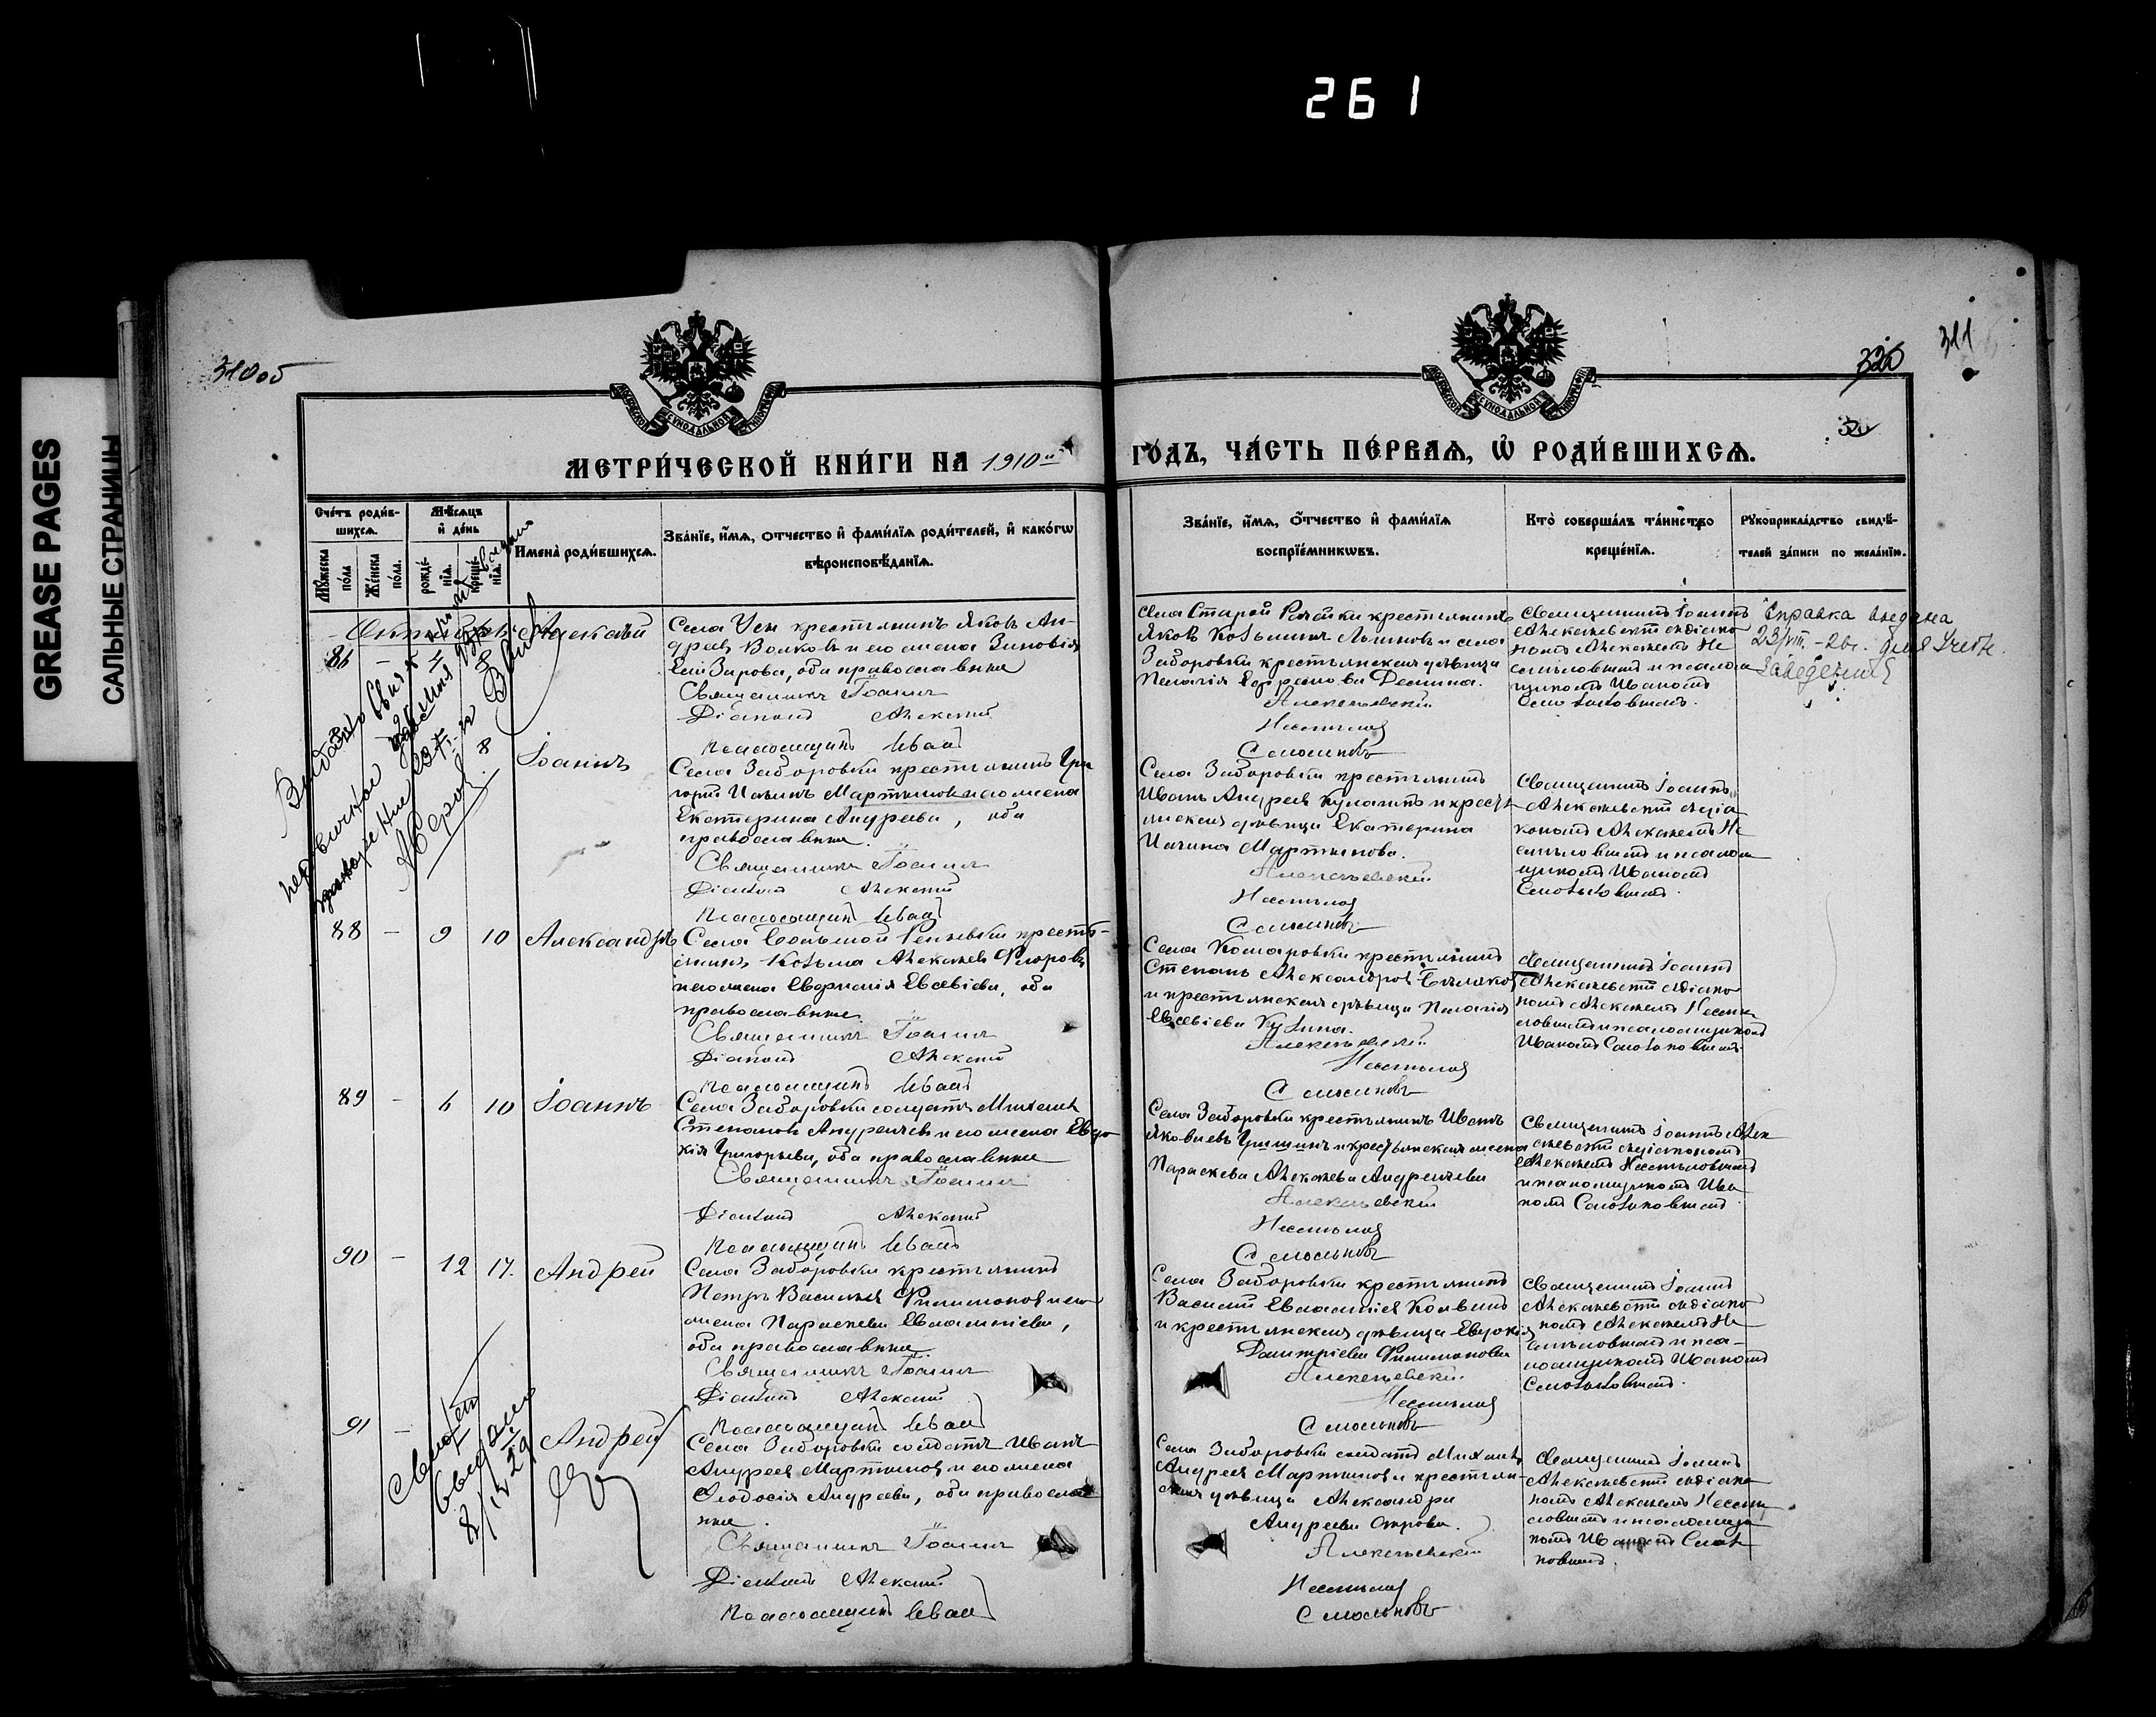 261
GREASE PAGES
САЛЬНЫЕ СТРАНИЦЫ
310об
311
326
МЕТРИ́ЧЕСКОЙ КНИ́ГИ НА 1910й
ГО́ДЪ, ЧА́СТЬ ПЕ́РВАЯ, Ѽ РОДИ́ВШИХСЯ.
Сче́тъ роди́в-
шихся.
Мѣ́сяцъ
и҆ де́нь
Му́жеска
по́ла
Же́нска
по́ла.
рожде́-
нїѧ.
креще́-
нїѧ.
Имена̀ роди́вшихся.
Зва́нїе, и҆́мя, ѻ҆́тчество и҆ фами́лїя роди́телей, и҆ како́гѡ
вѣроисповѣ́данїя.
Зва́нїе, и҆́мя, ѻ҆́тчество и҆ фами́лїя
воспрїе́мникѡвъ.
Кто̀ соверша́лъ та́инство
креще́нїя.
Рꙋкоприкла́дство свидѣ́-
телей за́писи по жела́нїю.
Октябрь
Алексѣй
Села Усы крестьянинъ Яковъ Ан-
дреев Волковъ и его жена Зиновія
оба православные
Священникъ Іоаннъ
Діаконъ Алексій
Псаломщикъ Иванъ
Села Старой Рачейки крестьянинъ
Яковъ Козьминъ и села
Заборовки крестьянская дѣвица
Пелагія Ефремова Демина.
Алексѣевскій
Несмѣловъ
Смольковъ
Священникъ Іоаннъ
Алексѣевскій съ діако
номъ Алексѣемъ Не
смѣловымъ и псалом
щикомъ Иваномъ
Смольковымъ.
Справка выдана
23/VIII - 26г. для Учебн.
Заведенія
8
Іоаннъ
Села Заборовки крестьянинъ Гри
горій Ильинъ Мартыновъ и его жена
Екатерина Андреева, оба
православные.
Священникъ Іоаннъ
Діаконъ Алексій
Псаломщикъ Иванъ
Села Заборовки крестьянинъ
Иванъ Андреев Кулагинъ и крест
янская дѣвица Екатерина
Ильина Мартынова.
Алексѣевскій
Несмѣловъ
Смольковъ
Священникъ Іоаннъ
Алексѣевскій съ діа
кономъ Алексѣемъ Не
смѣловымъ и псалом
щикомъ Иваномъ
Смольковымъ.
88 - 9 10 Александръ
Села Большой Репьевки кресть-
янинъ Козьма Алексѣев Флоровъ
и его жена Евфимія Евсевіева, оба
православные.
Священникъ Іоаннъ
Діаконъ Алексій
Псаломщикъ Иванъ
Села Комаровки крестьянинъ
Степанъ Александров Бѣляков
и крестьянская дѣвица Пелагія
Евсевіева Кузина.
Алексѣевскій
Несмѣловъ
Смольковъ
Священникъ Іоаннъ
Алексѣевскій съ діако
номъ Алексѣемъ Несмѣ
ловымъ и псаломщикомъ
Иваномъ Смольковымъ.
89 - 6 10 Іоаннъ
Села Заборовки солдатъ Михаилъ
Степановъ Андреичевъ и его жена Евдо
кія Григорьева, оба православные
Священникъ Іоаннъ
Діаконъ Алексій
Псаломщикъ Иванъ
Села Заборовки крестьянинъ Иванъ
Яковлевъ Гришинъ и крестьянская жена
Параскева Алексѣева Андреичева
Алексѣевскій
Несмѣловъ
Смольковъ
Священникъ Іоаннъ Алек
сѣевскій съ діакономъ
Алексѣемъ Несмѣловымъ
и псаломщикомъ Ива
номъ Смольковымъ.
90 - 12 17. Андрей
Села Заборовки крестьянинъ
Петръ Васильев Филимонов и его
жена Параскева Евлампіева,
оба православные.
Священникъ Іоаннъ
Діаконъ Алексій
Псаломщикъ Иванъ
Села Заборовки крестьянинъ
Василій Евлампіев Колвинъ
и крестьянская дѣвица Евдокія
Димитріева Филимонова
Алексѣевскій
Несмѣловъ
Смольковъ
Священникъ Іоаннъ
Алексѣевскій съ діако
номъ Алексѣемъ Не
смѣловымъ и пса-
ломщикомъ Иваномъ
Смольковымъ.
91 - Андрей
8/12 29
Села Заборовки солдатъ Иванъ
Андреев Мартынов и его жена
Ѳеодосія Андреева, оба православ
ные.
Священникъ Іоаннъ
Діаконъ Алексій
Псаломщикъ Иванъ
Села Заборовки солдатъ Михаилъ
Андреев Мартынов и крестьян-
ская дѣвица Александра
Андреева
Алексѣевскій
Несмѣловъ
Смольковъ
Священникъ Іоаннъ
Алексѣевскій съ діако
номъ Алексѣемъ Несмѣ
ловымъ и псаломщи
комъ Иваномъ Смоль
ковымъ.